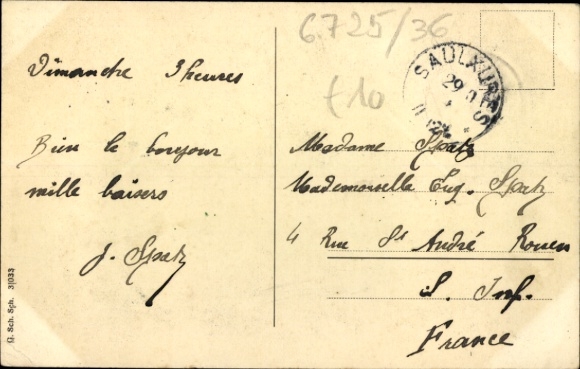 Dimanche 3 heures
Bien le bonjour
mille baisers
J. Spatz
G. Sch. Sph. 31033
6.725/36
£10
SAULXURES
29
Madame Spatz
Mademoiselle Eug. Spatz
4 Rue St André Rouen
S. Inf.
France